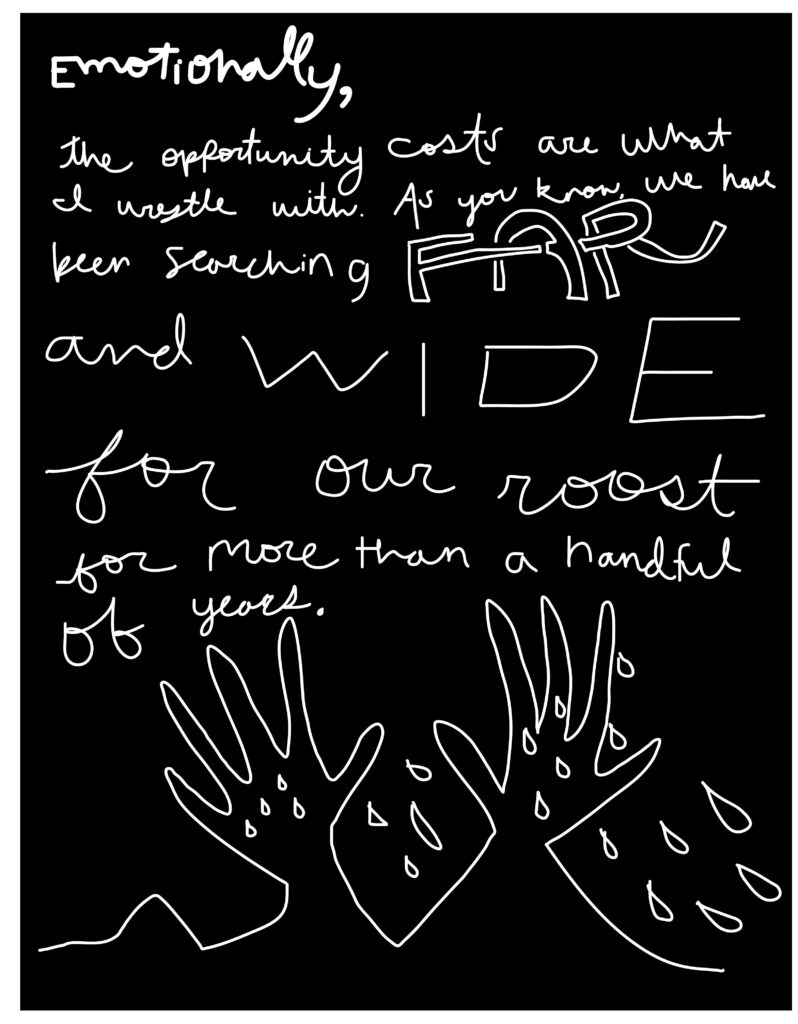 Emotionally,
the opportunity costs are what
I wrestle with. As you know, we have
been searching FAR
and WIDE
for our roost
for more than a handful
of years.